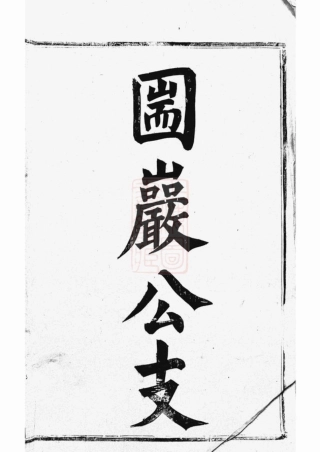 圌巖公支